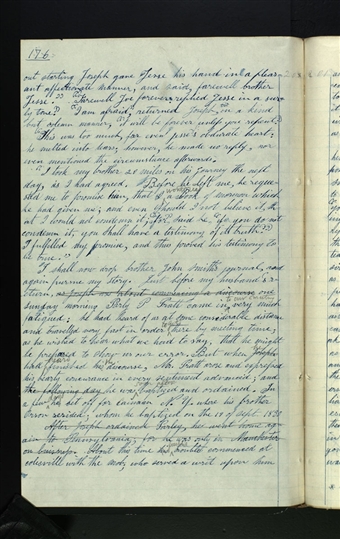 176
out starting Joseph gave Jesse his hand in a pleas-
ant affectionate manner, and said, farewell brother
Jesse." "Farewell Joe forever," replied Jesse in a sur-
ly tone. "I am afraid," returned Joseph, in a kind
but solemn manner, "it will be forever unless you repent."
This was too much, for even Jesse's obdurate heart;
he melted into tears; however, he made no reply, nor
even mentioned the circumstance afterwards.
"I took my brother 25 miles on his journey the next
day, as I had agreed. Before he left me, he reque-
sted me to promise him, that I would read a book of mormon, which
he had given me; and even should I not believe it, that
I would not condemn it; "for," said he "if you do not
condemn it, you shall have a testimony of its truth."
I fulfilled my promise, and thus proved his testimony to
be true."
I shall now drop brother John Smith's journal, and
again pursue my story. Just before my husband's re-
turn, as Joseph was about commencing a discourse one
Sunday morning Parly P. Pratt came in, very much
fatigued; he had heard of us at some considerable distance
and traveled very fast in order to get there by meeting time,
as he wished to hear what we had to say, that he might
be prepared to show us our error. But when Joseph
had finished his discourse, Mr. Pratt arose and expressed
his hearty concurrence in every sentiment advanced; and
the following day he was baptized and ordained. In
a few days he set off for Canaan N. Y. where his brother
Orson resided, whom he baptized on the 19 of Sept. 1830
After Joseph ordained Parley, he went home ag-
ain to Pennsylvania, for he was only in Manchester
on business. About this time his trouble commenced at
Colesville with the mob, who served a writ upon him